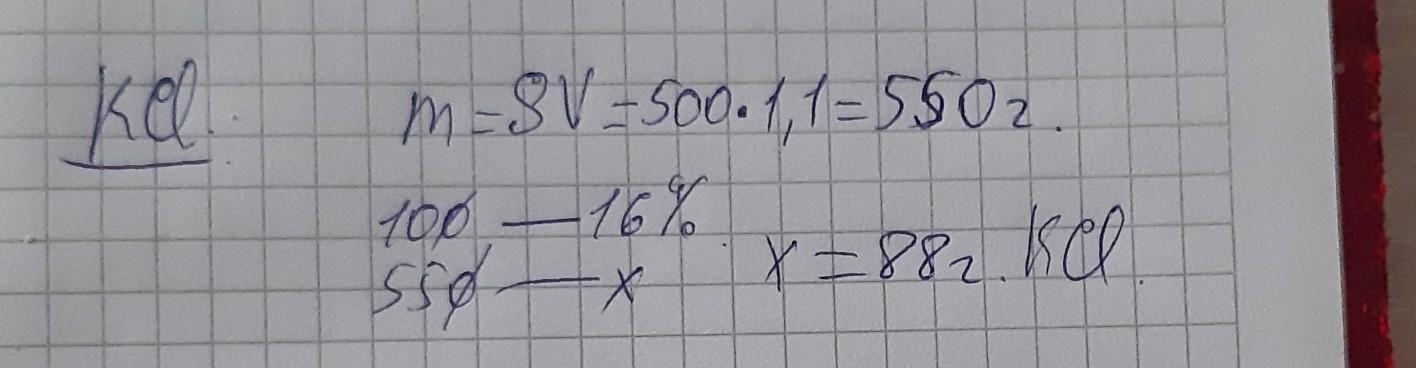 KCl. m = ρV = 500 · 1,1 = 550 г.
100 — 16%
550 — x x = 88 г. KCl.